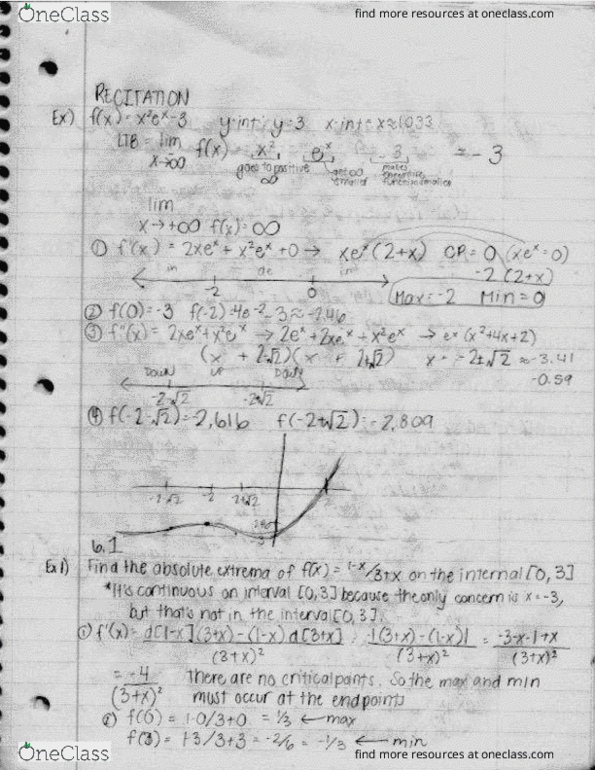 OneClass
find more resources at oneclass.com
RECITATION
Ex) f(x) = x²eˣ-3 y-int: y=3 x-int= x≈1.033
LTB = lim x→-∞ f(x) x² eˣ - 3 = - 3
goes to positive ∞ makes
lim x→+∞ f(x)=∞
① f'(x) = 2xeˣ + x²eˣ + 0 → xeˣ(2+x) CP= 0 (xeˣ=0)
-2 (2+x)
in de
-2 0
Max=-2 Min=0
② f(0)=-3 f(-2)=4e⁻²-3≈-2.46
③ f''(x) = 2xeˣ+x²eˣ → 2eˣ+2xeˣ+x²eˣ → eˣ(x²+4x+2)
(x + 2-√2)(x + 2+√2) x = -2±√2 ≈ -3.41
-0.59
DOWN UP
-2-√2 -2+√2
④ f(-2-√2)=-2.616 f(-2+√2)=-2.809
-2-√2 -2 -2+√2
6.1
Ex1) Find the absolute extrema of f(x)= 1-x/3+x on the internal [0,3]
*It's continuous on interval [0,3] because the only concern is x=-3,
but that's not in the interval [0,3].
① f'(x) = d[1-x](3+x)-(1-x)d[3+x] / (3+x)² = -1(3+x)-(1-x)1 / (3+x)² = -3-x-1+x / (3+x)²
= -4 / (3+x)² There are no critical points. So the max and min
must occur at the endpoints
② f(0) = 1-0/3+0 = 1/3 ← max
f(3) = 1-3/3+3 = -2/6 = -1/3 ← min
OneClass
find more resources at oneclass.com